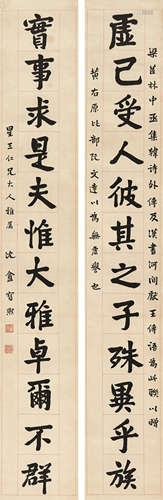 梁茞林中丞集韓詩外傳及漢書河間獻王傳語為此聯以贈
虛己受人彼其之子殊異乎族
黃右原比部阮文達以為無虛譽也
實事求是夫惟大雅卓爾不群
星五仁兄大人雅屬
沈盦寶熙